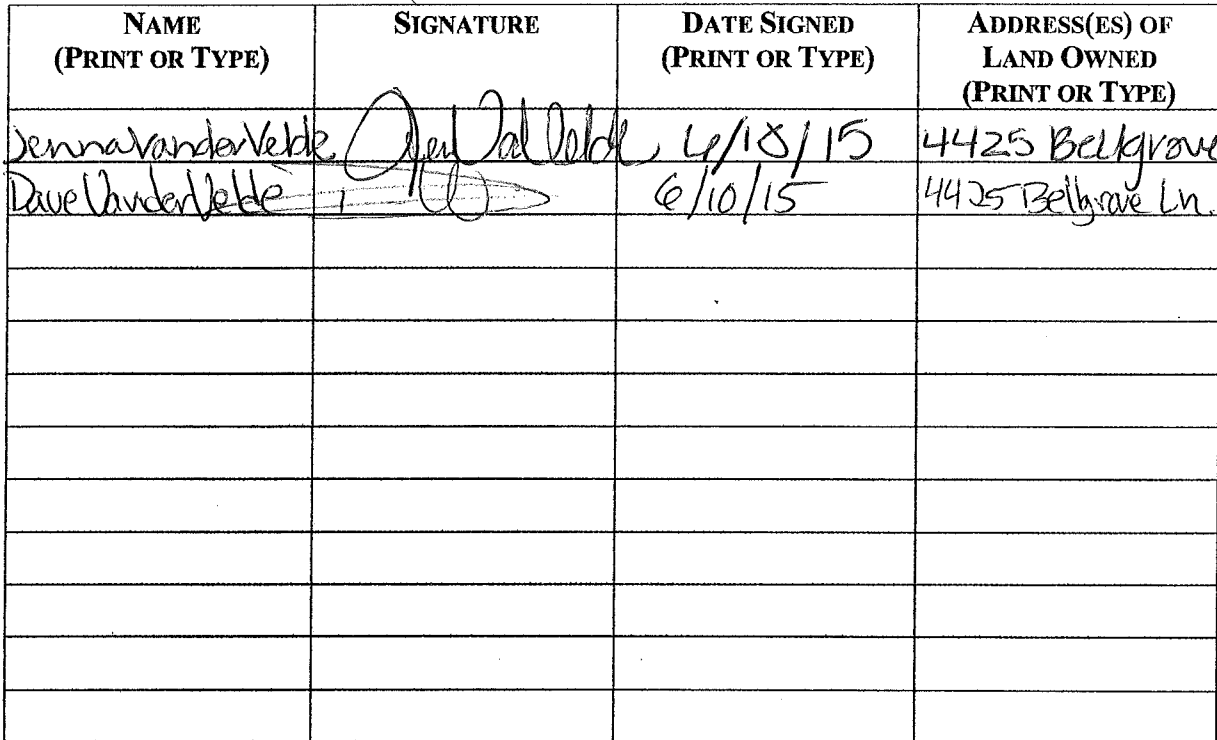 NAME
(PRINT OR TYPE)
SIGNATURE
DATE SIGNED
(PRINT OR TYPE)
ADDRESS(ES) OF
LAND OWNED
(PRINT OR TYPE)
Jenna VanderVelde 6/18/15 4425 Bellgrove
Dave VanderVelde 6/10/15 4425 Bellgrove Ln.